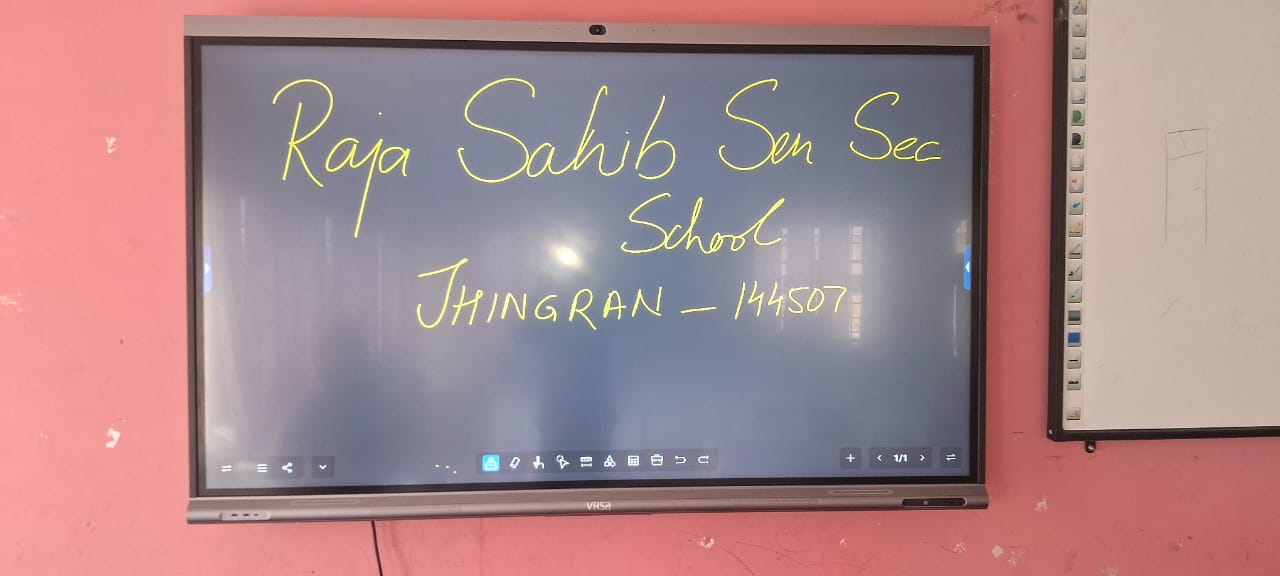 Raja Sahib Sen Sec
School
JHINGRAN - 144507
1/1